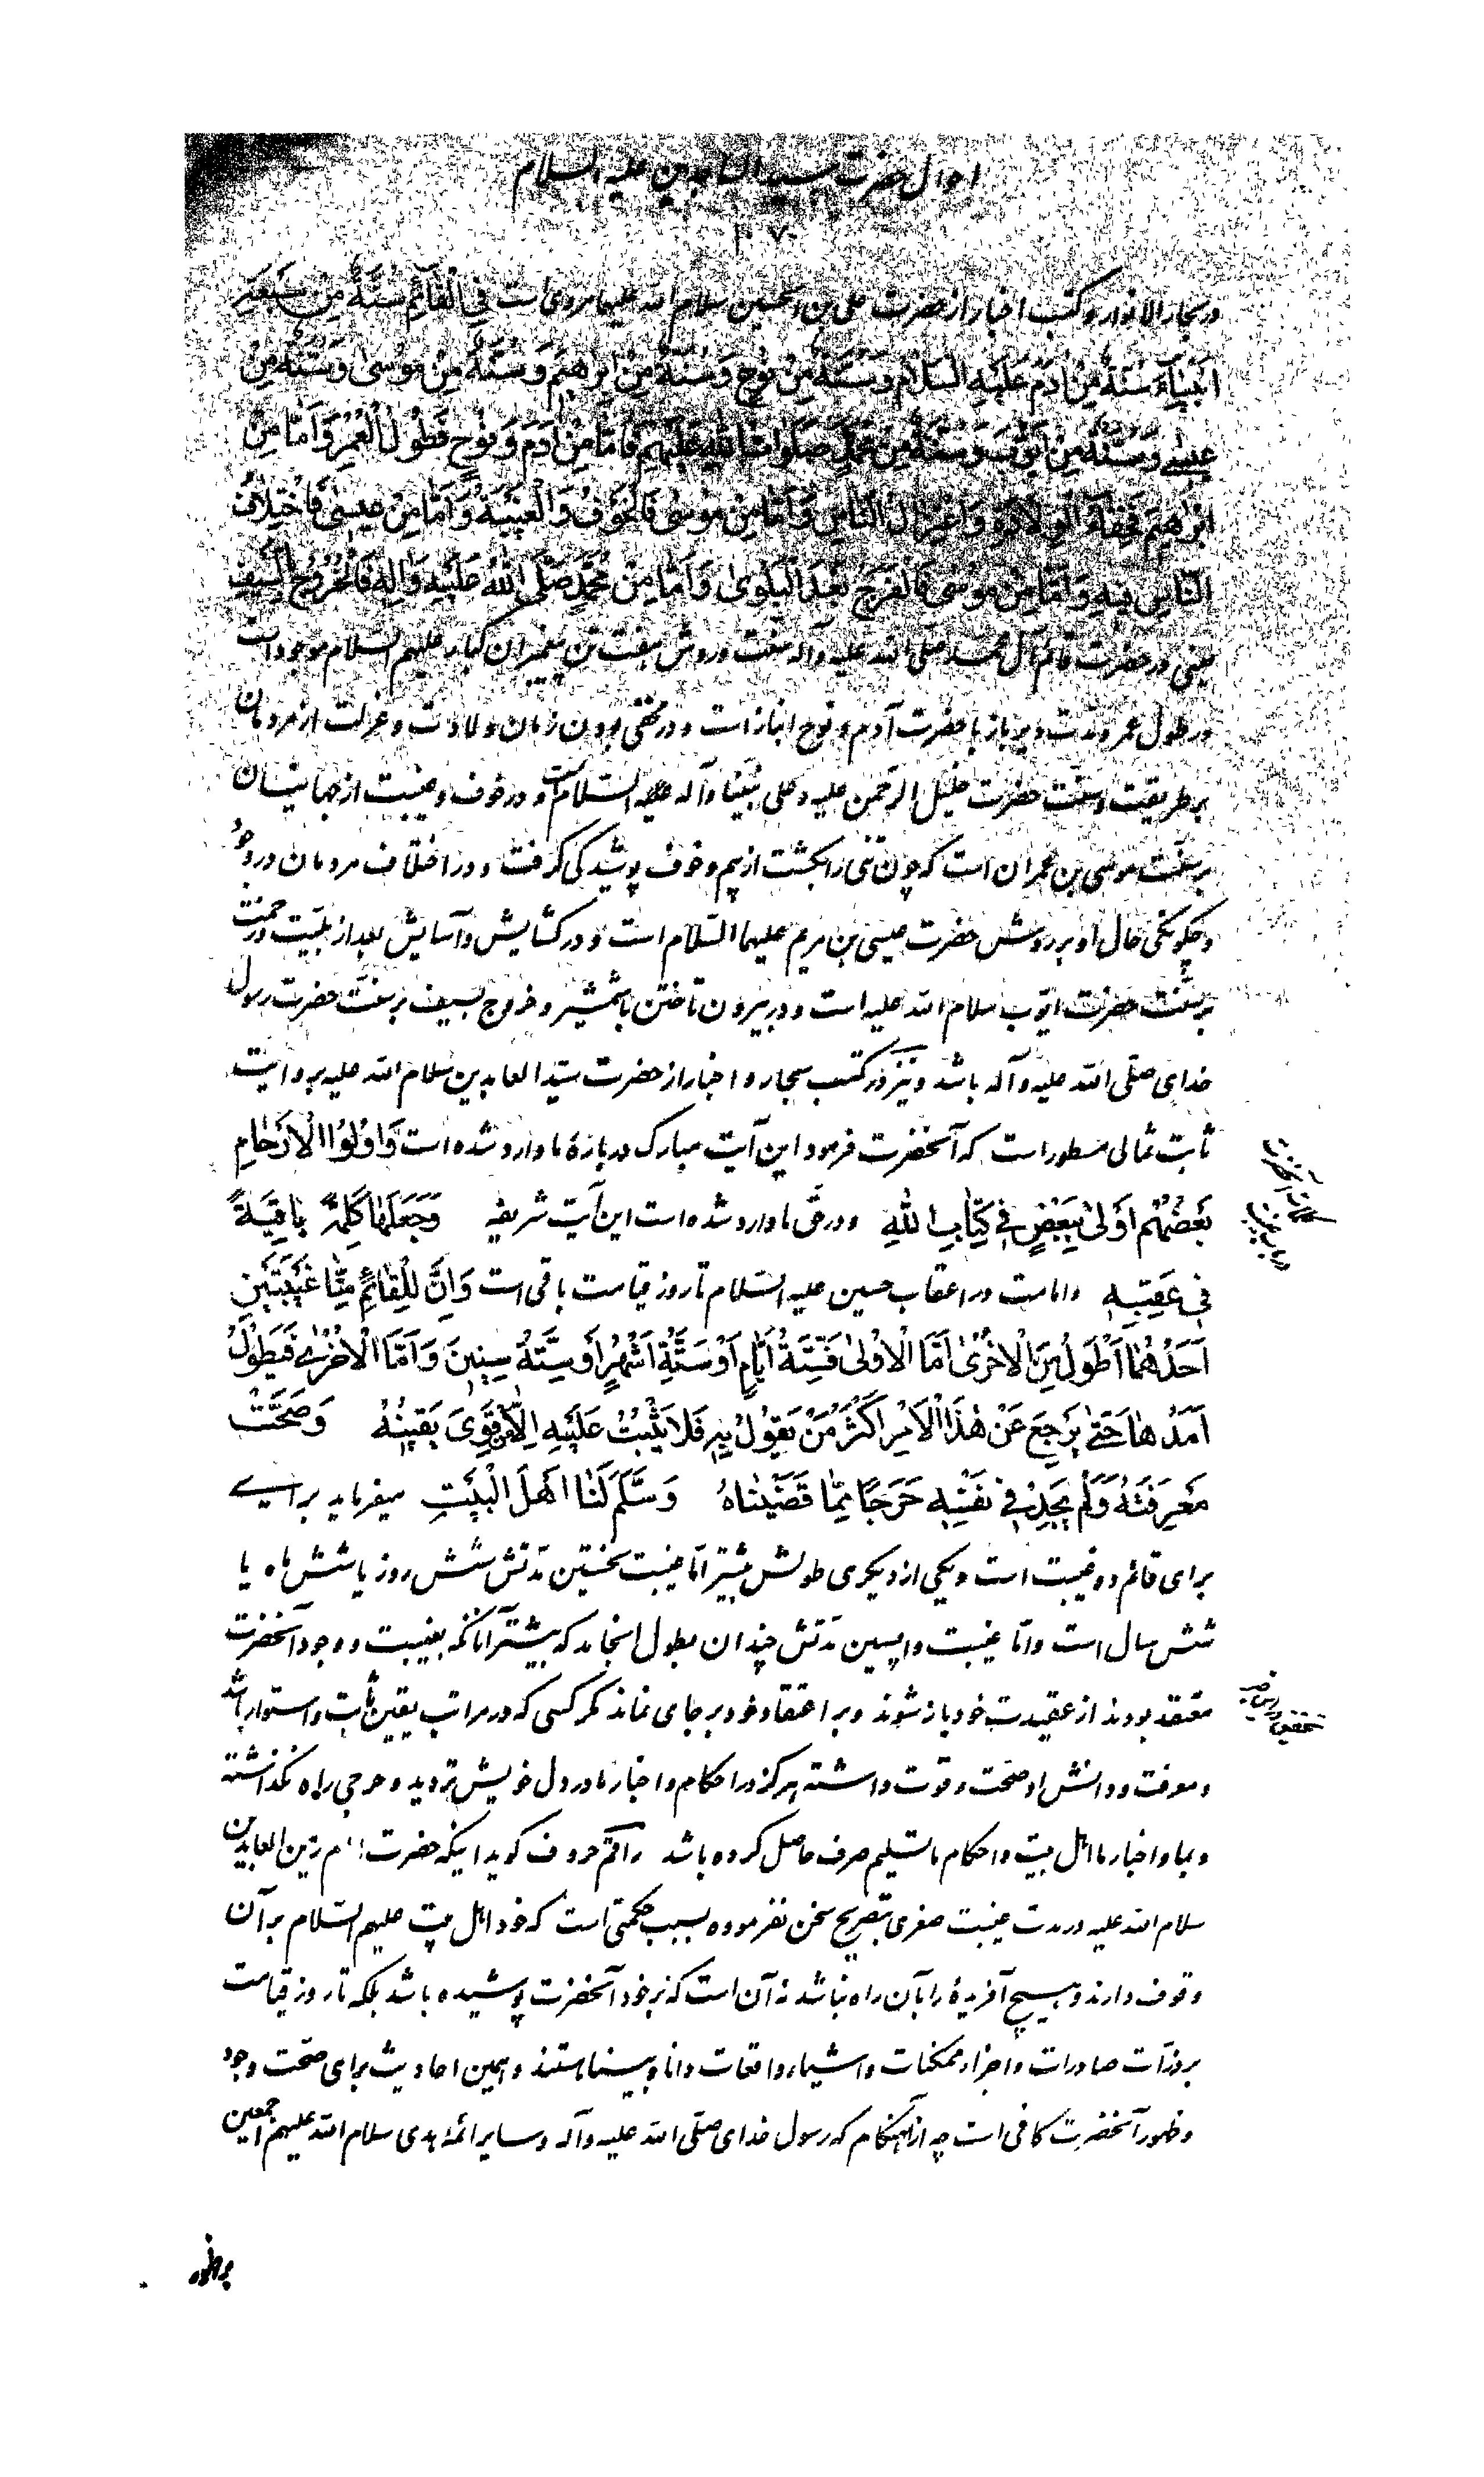 احوال حضرت سید الساجدین علیه السلام
۷۰
در بحار الانوار و کتب اخبار از حضرت علی بن الحسین سلام الله علیهما مروی است فِی الْقآئِمِ سُنَّةٌ مِنْ سَبْعَةِ
اَنْبِیآءَ سُنَّةٌ مِنْ اٰدَمَ عَلَیْهِ السَّلامُ وَسُنَّةٌ مِنْ نُوحٍ وَسُنَّةٌ مِنْ اِبْرٰهیمَ وَسُنَّةٌ مِنْ مُوسٰی وَسُنَّةٌ مِنْ
عیسٰی وَسُنَّةٌ مِنْ اَیُّوبَ وَسُنَّةٌ مِنْ مُحَمَّدٍ صَلَواتُ اللهِ عَلَیْهِمْ فَاَمّا مِنْ اٰدَمَ وَنُوحٍ فَطُولُ الْعُمْرِ وَاَمّا مِنْ
اِبْرٰهیمَ فَخِفآءُ الْوِلادَةِ وَاعْتِزالُ النّاسِ وَاَمّا مِنْ مُوسٰی فَالْخَوْفُ وَالْغَیْبَةُ وَاَمّا مِنْ عیسٰی فَاخْتِلافُ
النّاسِ فیهِ وَاَمّا مِنْ مُوسٰی فَالْفَرَجُ بَعْدَ الْبَلْویٰ وَاَمّا مِنْ مُحَمَّدٍ صَلَّی اللهُ عَلَیْهِ وَاٰلِهِ فَالْخُرُوجُ بِالسَّیْفِ
یعنی در حضرت قائم آل محمد صلی الله علیه وآله سنت و روش هفت تن پیغمبران کبار علیهم السلام موجود است
در طول عمر و مدت دیرباز با حضرت آدم و نوح انباز است و در مختفی بودن زمان ولادت و عزلت از مردمان
بر طریقت و سنت حضرت خلیل الرحمن علیه وعلی نبینا وآله علیه السلام است و در خوف و غیبت از جهانیان
بر سنت موسی بن عمران است که چون تنی را بکشت از بیم و خوف پوشیدگی گرفت و در اختلاف مردمان در وجود
و چگونگی حال او بر روش حضرت عیسی بن مریم علیهما السلام است و در گشایش و آسایش بعد از بلیت و زحمت
بر سنت حضرت ایوب سلام الله علیه است و در بیرون تاختن با شمشیر و خروج بسیف بر سنت حضرت رسول
خدای صلی الله علیه وآله باشد و نیز در کتب بحار و اخبار از حضرت سید العابدین سلام الله علیه بروایت
ثابت ثمالی مسطور است که آنحضرت فرمود این آیت مبارک در بارهٔ ما وارد شده است وَاُولُوا الْاَرْحامِ
بَعْضُهُمْ اَوْلیٰ بِبَعْضٍ فی کِتابِ اللهِ و در حق ما وارد شده است این آیت شریفه وَجَعَلَها کَلِمَةً باقِیَةً
فی عَقِبِهِ و امامت در اعقاب حسین علیه السلام تا روز قیامت باقی است وَاِنَّ لِلْقائِمِ مِنّا غَیْبَتَیْنِ
اَحَدُهُما اَطْوَلُ مِنَ الْاُخْریٰ اَمَّا الْاُولیٰ فَسِتَّةُ اَیّامٍ اَوْ سِتَّةُ اَشْهُرٍ اَوْ سِتَّةُ سِنینَ وَاَمَّا الْاُخْریٰ فَیَطُولُ
اَمَدُها حَتّیٰ یَرْجِعَ عَنْ هٰذَا الْاَمْرِ اَکْثَرُ مَنْ یَقُولُ بِهِ فَلا یَثْبُتُ عَلَیْهِ اِلّا مَنْ قَوِیَ یَقینُهُ وَصَحَّتْ
مَعْرِفَتُهُ وَلَمْ یَجِدْ فی نَفْسِهِ حَرَجًا مِمّا قَضَیْناهُ وَسَلَّمَ لَنا اَهْلَ الْبَیْتِ میفرماید براستی
برای قائم دو غیبت است و یکی از دیگری طولش بیشتر اما غیبت نخستین مدتش شش روز یا شش ماه یا
شش سال است و اما غیبت واپسین مدتش چندان بطول انجامد که بیشتر آنانکه بغیبت و وجود آنحضرت
معتقد بودند از عقیدت خود باز شوند و بر اعتقاد خود بر جای نماند مگر کسی که در مراتب یقین ثابت و استوار باشد
و معرفت و دانش او صحت و قوت داشته هرگز در احکام و اخبار ما در دل خویش تردید و حرجی راه نگذاشته
و بما و اخبار ما اهل بیت و احکام ما تسلیم صرف حاصل کرده باشد راقم حروف گوید اینکه حضرت امام زین العابدین
سلام الله علیه در مدت غیبت صغری بتصریح سخن نفرموده بسبب حکمتی است که خود اهل بیت علیهم السلام بر آن
وقوف دارند و هیچ آفریدهٔ را بآن راه نباشد نه آن است که بر خود آنحضرت پوشیده باشد بلکه تا روز قیامت
بر ذرات صادرات و اجزاء ممکنات و اشیاء و واقعات دانا و بینا هستند و همین احادیث برای صحت وجود
و ظهور آنحضرت کافی است چه از آنهنگام که رسول خدای صلی الله علیه وآله و سایر ائمهٔ هدی سلام الله علیهم اجمعین